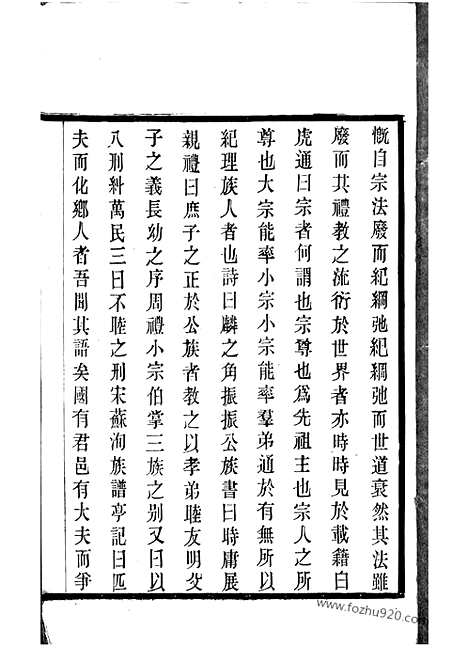 慨自宗法廢而紀綱弛紀綱弛而世道衰然其法雖
廢而其禮教之流衍於世界者亦時時見於載籍白
虎通曰宗者何謂也宗尊也為先祖主也宗人之所
尊也大宗能率小宗小宗能率羣弟通於有無所以
紀理族人者也詩曰麟之角振振公族書曰時庸展
親禮曰庶子之正於公族者教之以孝弟睦友明父
子之義長幼之序周禮小宗伯掌三族之别又曰以
八刑糾萬民三曰不睦之刑宋蘇洵族譜亭記曰匹
夫而化鄉人者吾聞其語矣國有君邑有大夫而爭
www.fozhu920.com